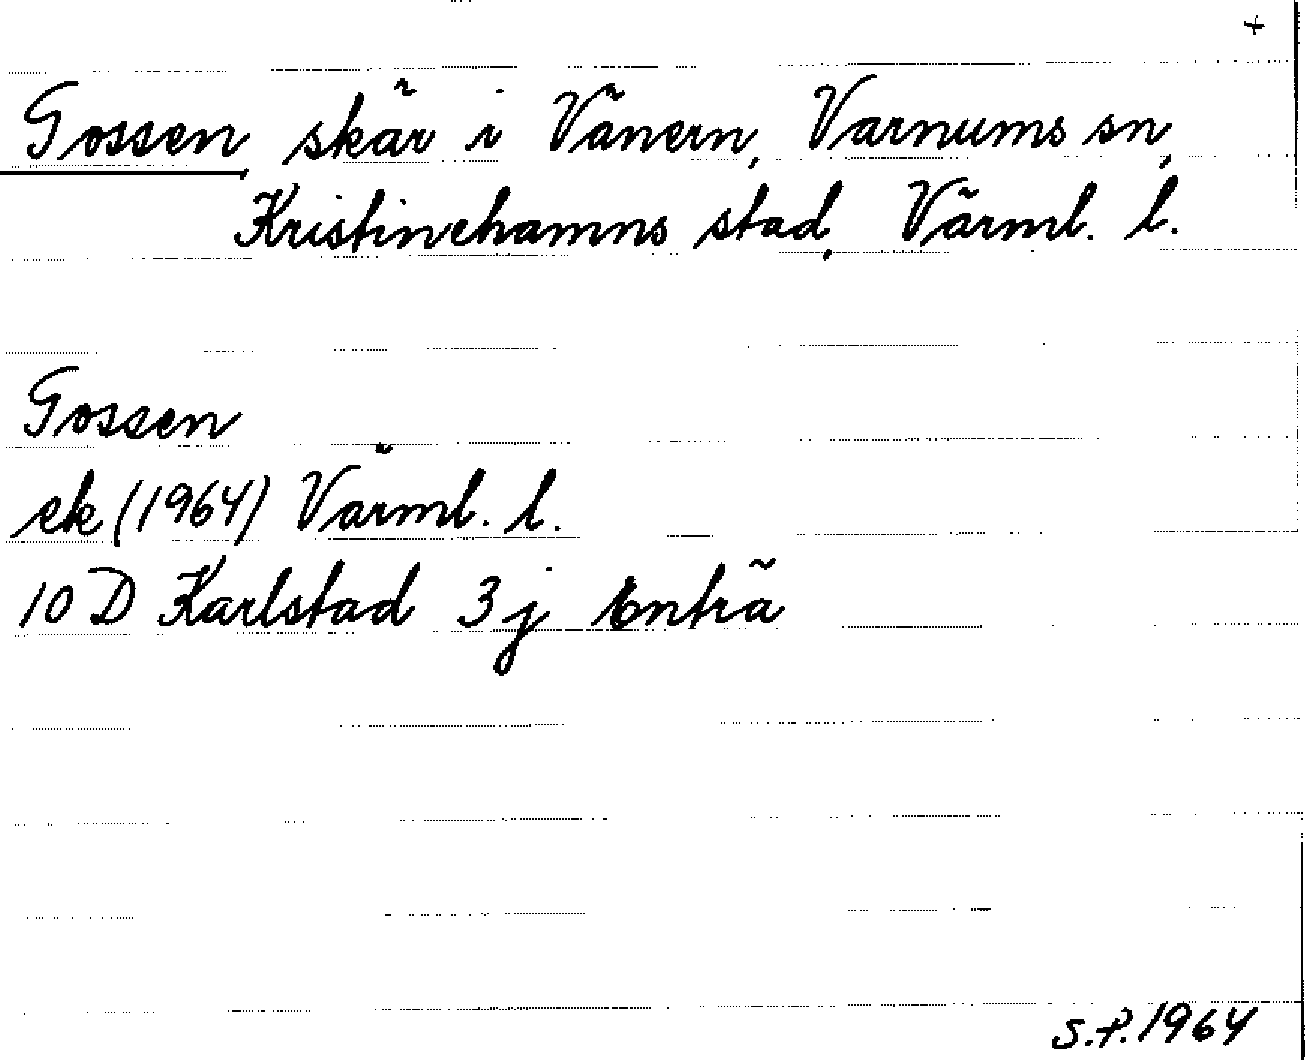 +
Gossen, skär i Vänern, Varnums sn,
Kristinehamns stad, Värml. l.
Gossen
ek (1964) Värml. l.
10 D Karlstad 3 j Enträ
S.P. 1964